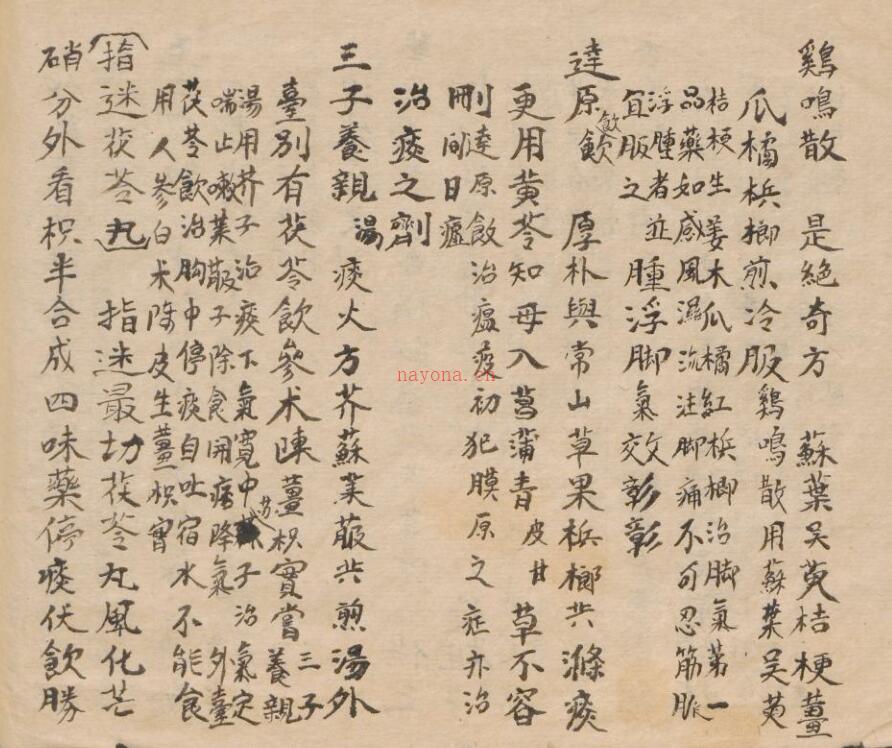 鷄鳴散　是絕奇方　蘇葉吳萸桔梗薑
瓜橘梹榔煎冷服　鷄鳴散用蘇葉吳萸
桔梗生姜木瓜橘紅梹榔治脚氣第一
品藥如感風濕流注脚痛不可忍筋脈
浮腫者並
宜服之　腫浮脚氣效彰彰
達原飲　厚朴與常山草果梹榔共滌痰
更用黄芩知母入菖蒲青皮甘草不容
刪　達原飲治瘟疫初犯膜原之症亦治
間日瘧
治痰之劑
三子養親湯　痰火方芥蘇萊菔共煎湯外
臺別有茯苓飲參术陳薑枳實嘗　三子養親
湯用芥子治痰下氣寬中蘇子治氣定
喘止嗽萊菔子除食開痞降氣　外臺
茯苓飲治胸中停痰自吐宿水不能食
用人參白术陳皮生薑枳實
指迷茯苓丸　指迷最切茯苓丸風化芒
硝分外看枳半合成四味藥停痰伏飲勝
nayona.cn